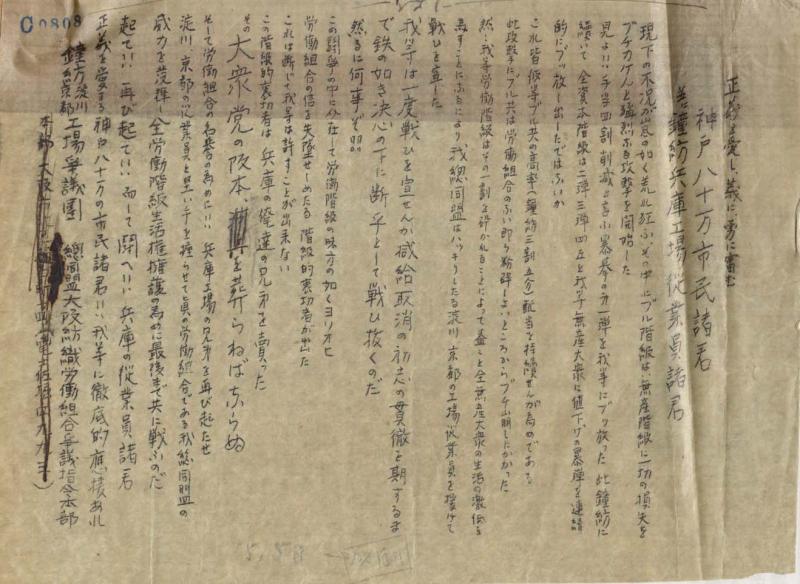 正義を愛し、義に勇に富む
神戸八十万市民諸君
鐘紡兵庫工場従業員諸君
現下の不況が嵐の如く荒れ狂ふその中にブル階級は無産階級に一切の損失を
ブチカケんと猛烈なる攻撃を開始した
見よ!!手当四割削減と云ふ暴暴の第一弾を我等にブッ放った 此鐘紡に
続いて全資本階級は二弾三弾四五と我が無産大衆に値下げの暴圧を連続
的にブッ放し出したではないか
これ皆彼等ブル共の高率(鐘紡三割五分)配当を持続せんが為のである
此攻撃にブル共は労働組合のない即ち粉砕しよいところからブチ山崩しかかった
然し我等労働階級はその一割を許かれることによって益々全無産大衆の生活の激低を
為すことになるにより 我総同盟はハッキリしたる淀川 京都の工場従業員を援けて
戦ひを宣した
我等は一度戦ひを宣せんか減給取消の初志の貫徹を期するま
で鉄の如き決心の下に断乎として戦ひ抜くのだ
然るに何事ぞ!!
この闘争中に介在して労働階級の味方の如くヨソオヒ
労働組合の信を失墜せしめたる 階級的裏切者が出た
これは断じて我等は許すことが出来ない
この階級的裏切者は 兵庫の俺達の兄弟を売った
その
大衆党の阪本、を葬らねばならぬ
そして労働組合の名誉の為めに!! 兵庫工場の兄弟を再び起たせ
淀川、京都の従業員と堅い手を握らせて真の労働組合である我総同盟の
威力を発揮し全労働階級生活権擁護の為めに最後まで共に戦ふのだ
起て!! 再び起て!! 而して 闘へ!! 兵庫の従業員諸君
正義を愛する神戸八十万の市民諸君!! 我等に徹底的応援あれ
鐘紡淀川京都工場争議団 総同盟大阪紡織労働組合争議指令本部
本部 大阪市
C0808